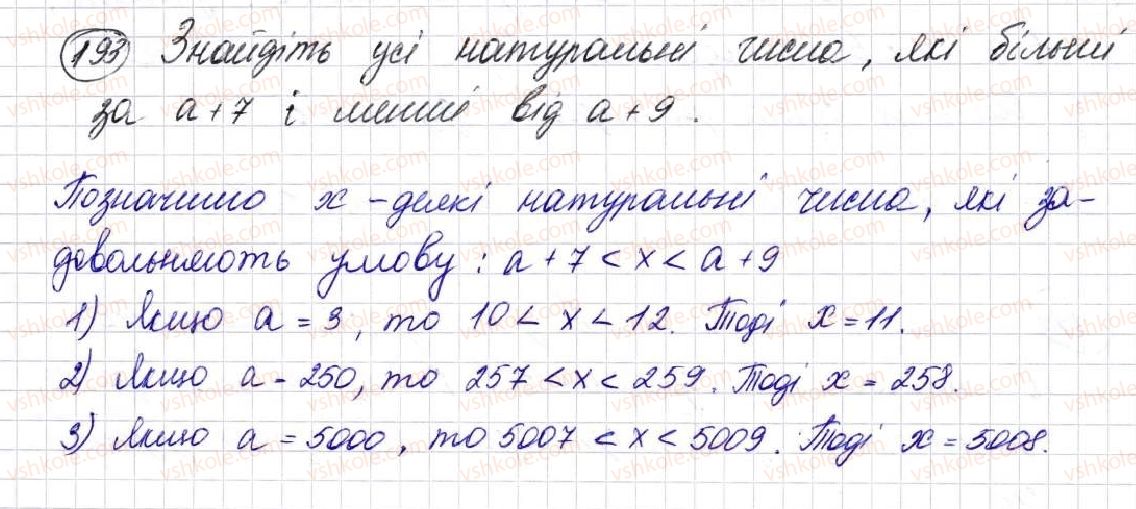 193 Знайдіть усі натуральні числа, які більші
за a+7 і менші від a+9.
Позначимо x - деякі натуральні числа, які за-
довольняють умову: a+7 < x < a+9
1) Якщо a = 3, то 10 < x < 12. Тоді x = 11.
2) Якщо a - 250, то 257 < x < 259. Тоді x = 258.
3) Якщо a = 5000, то 5007 < x < 5009. Тоді x = 5008.